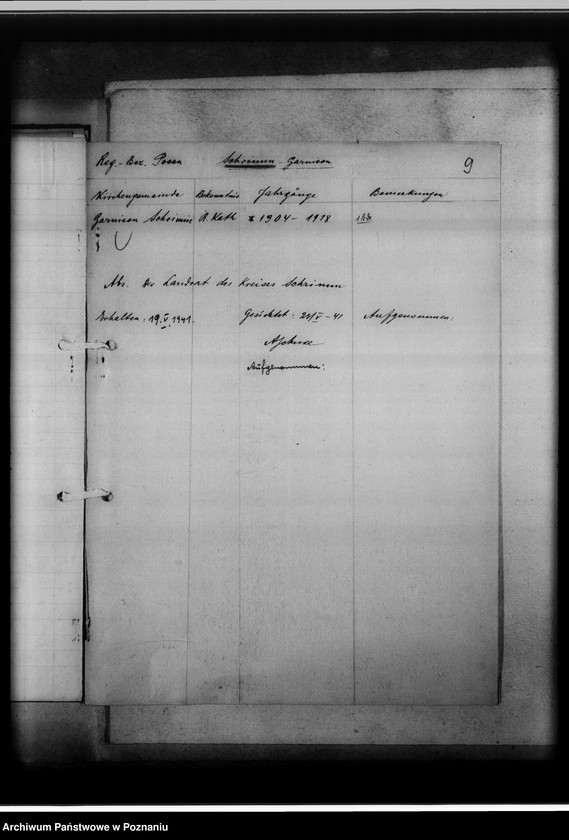 Reg.-Bez. Posen Schrimm - Garnison 9
Kirchengemeinde Bekenntnis Jahrgänge Bemerkungen
Garnison Schrimm R. Kath * 1904 - 1918 1 Bd.
Abs. Der Landrat des Kreises Schrimm
Erhalten: 19.V.1941. Gesichtet: 21/V - 41 Aufgenommen:
Aufgenommen:
Archiwum Państwowe w Poznaniu